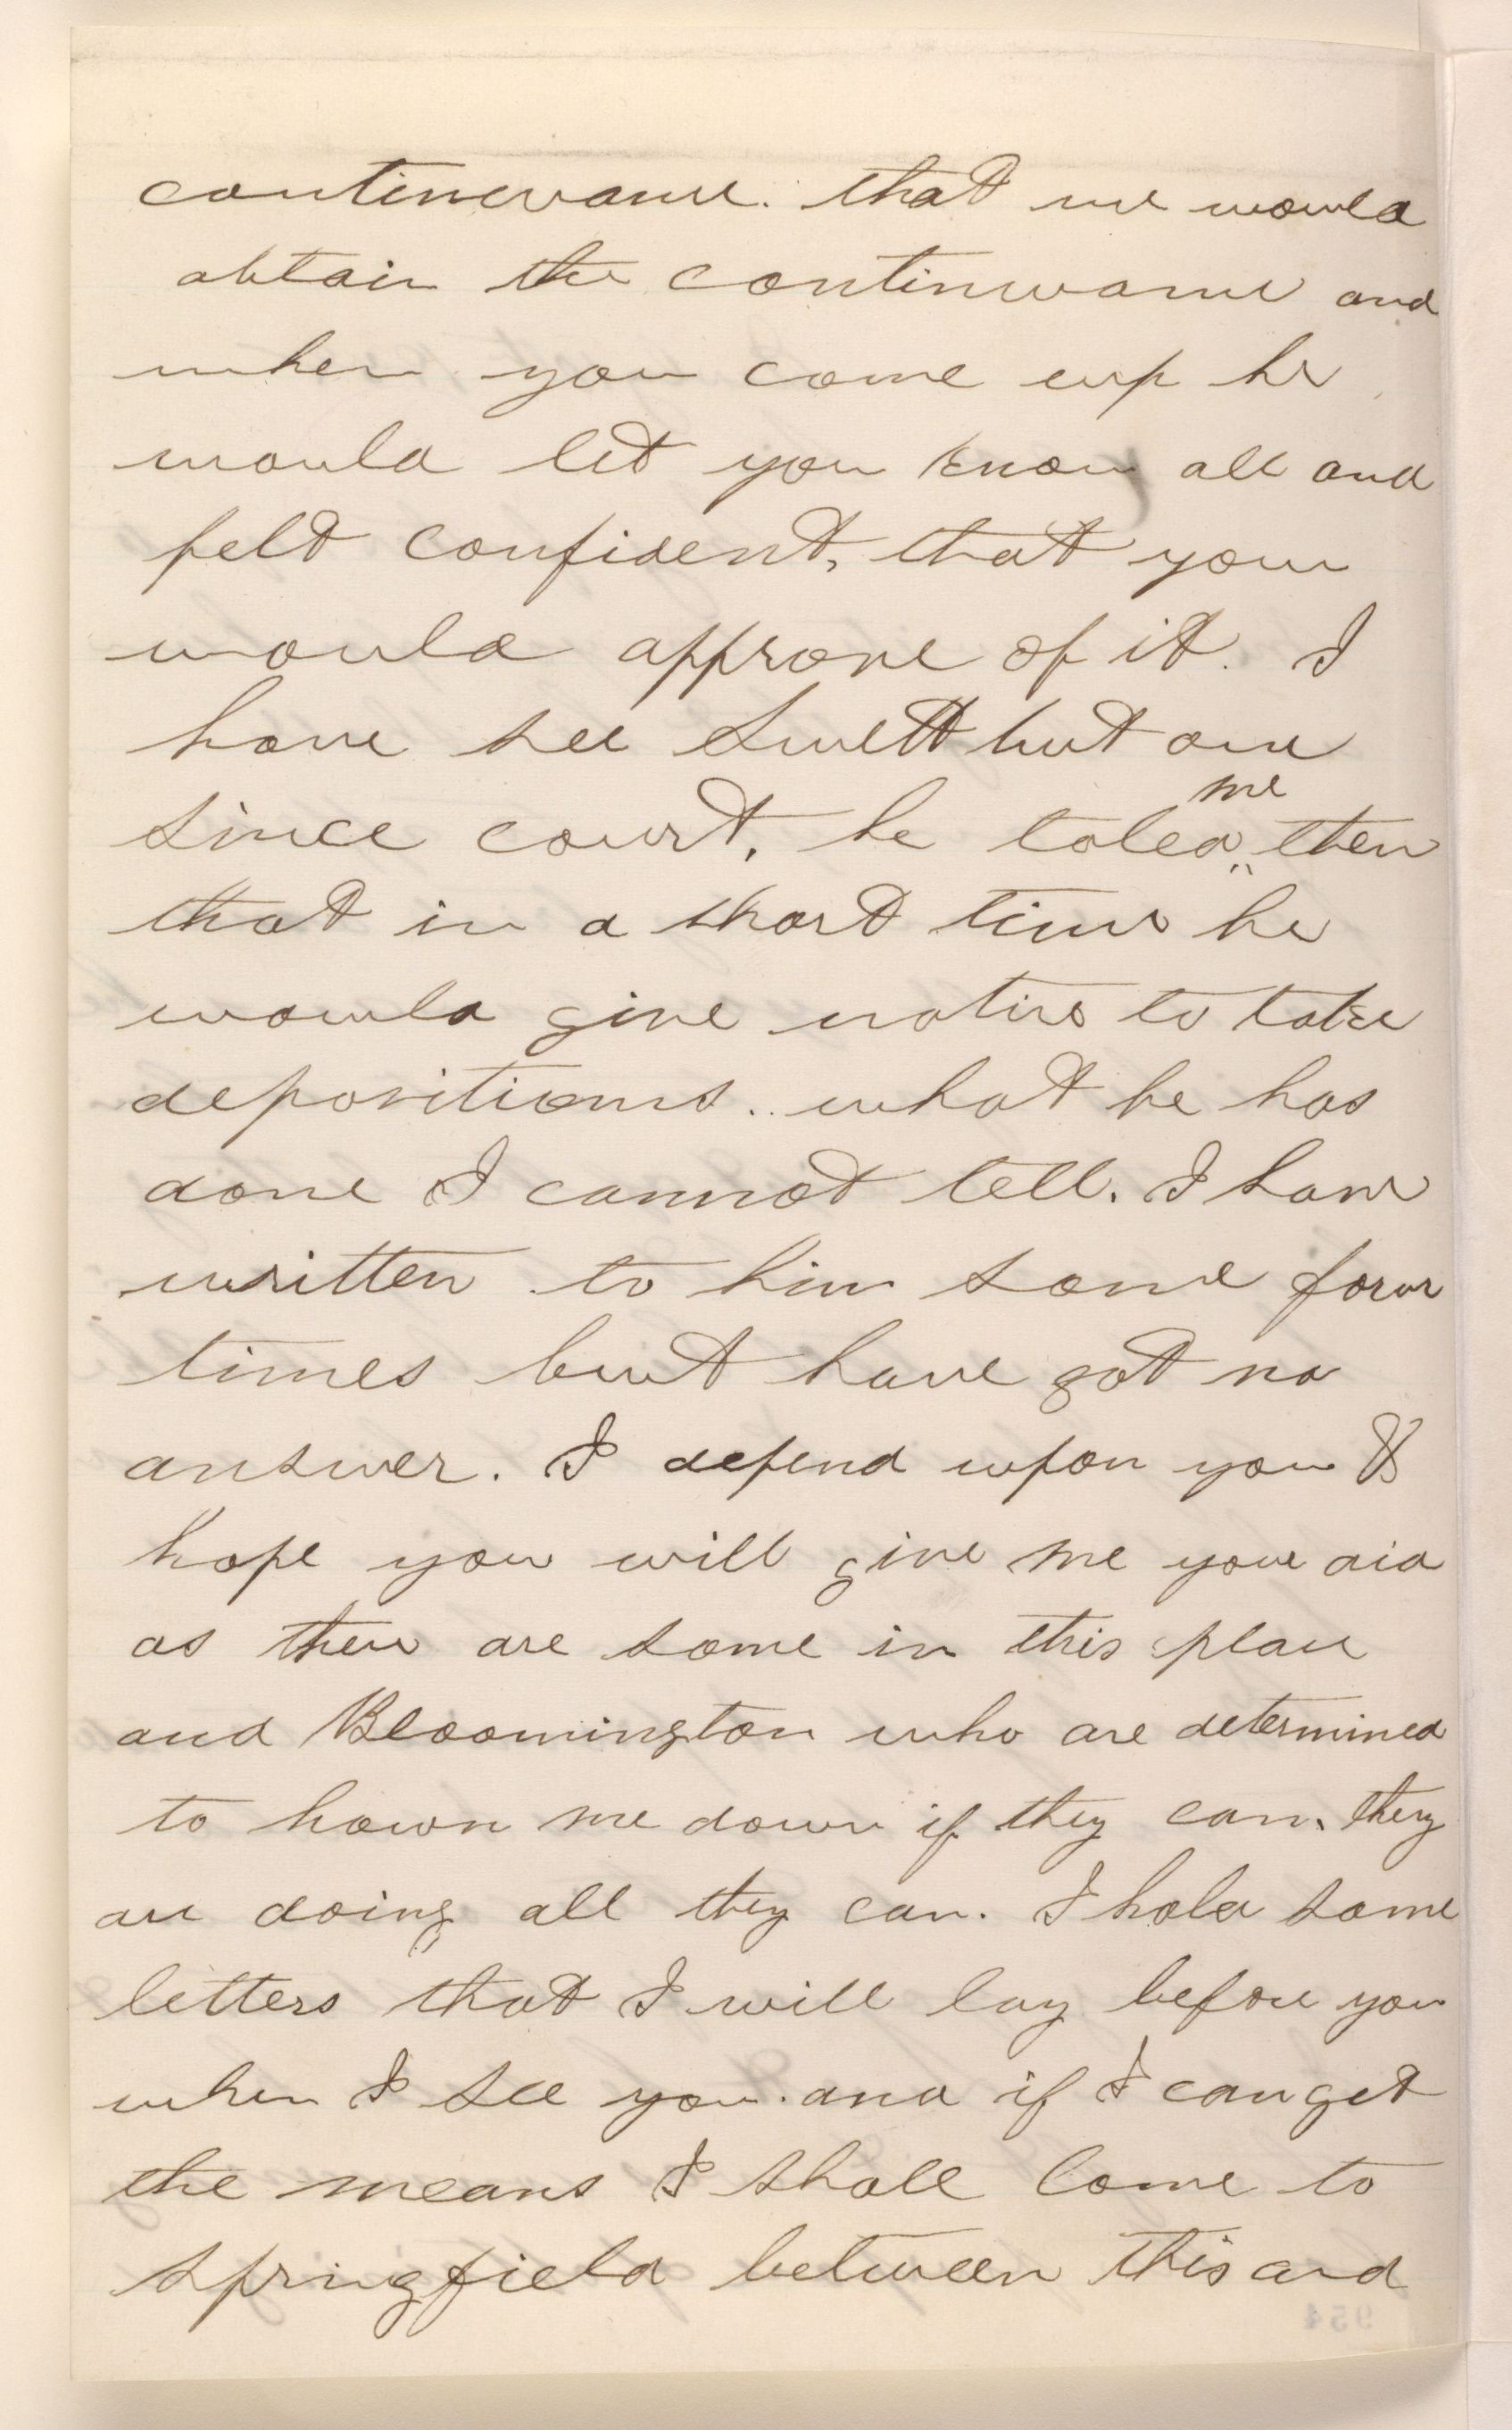 continuance. that we would
obtain the continuance and
when you come up he
would let you know all and
felt confident, that you
would approve of it. I
have see Swett but one
since court, he told me then
that in a short time he
would give notice to take
depositions.. what he has
done I cannot tell. I have
written to him some four
times but have got no
answer. I depend upon you &
hope you will give me your aid
as there are some in this place
and Bloomington who are determined
to hown me down if they can. they
are doing all they can. I hold some
letters that I will lay before you
when I see you. and if I can get
the means I shall come to
Springfield between this and
954